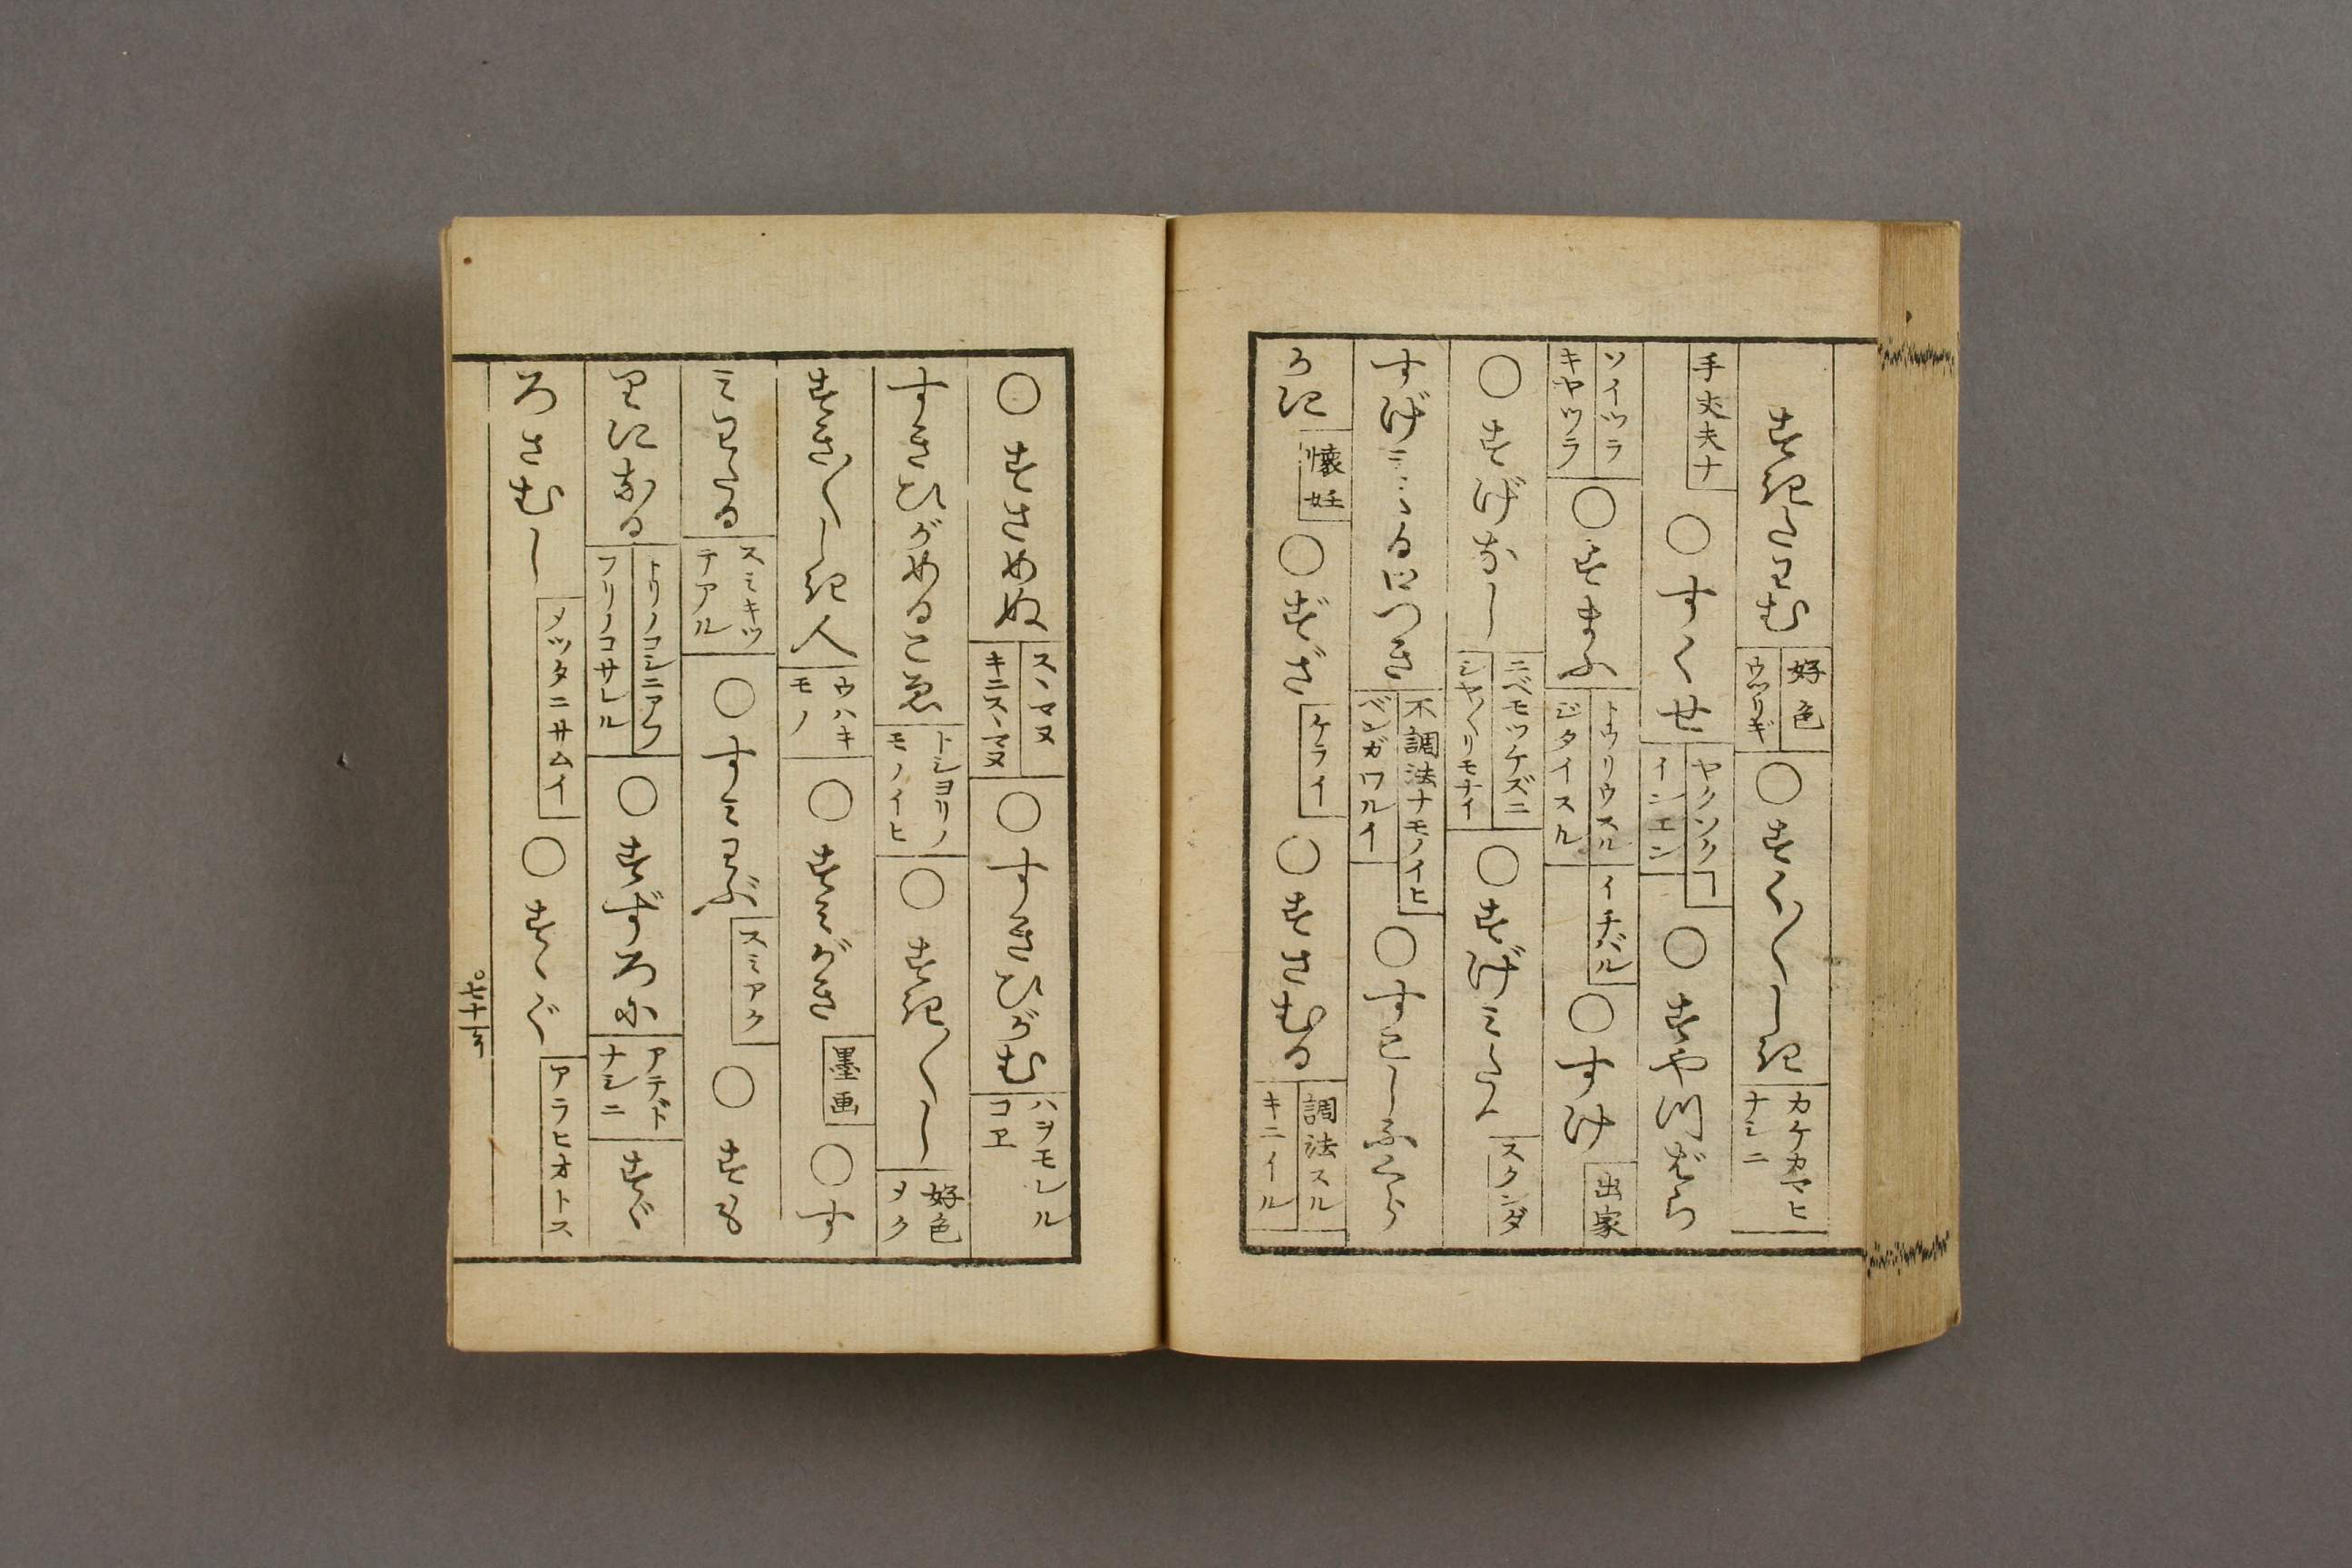 すきたわむ 好色 ウハリギ ○すく〳〵しき カケカマヒ ナシニ
手丈夫ナ ○すくせ ヤクソクコ インエン ○すやつばら
ソイツラ キヤツラ ○すまふ トウリウスル ジタイスル イチバル ○すけ 出家
○すげなし ニベモツケズニ シヤ〳〵リモナイ ○すげみたん スクンダ
すげみたる口つき 不調法ナモノイヒ ベンガワルイ ○すこしふくら
うき 懐妊 ○ずざ ケライ ○すさむる 調法スル キニイル
○すさめぬ スヽマヌ キニスヽマヌ ○すきひがむ ハヲモレル コヱ
すきひがめるこゑ トシヨリノ モノイヒ ○すき〳〵し 好色 メク
すき〳〵しき人 ウハキ モノ ○すみがき 墨画 ○す
みわたる スミキツ テアル ○すみわぶ スミアク ○すも
りになる トリノコシニアフ フリノコサレル ○すずろに アテド ナシニ すゞ
ろさむし メツタニサムイ ○すゝぐ アラヒオトス